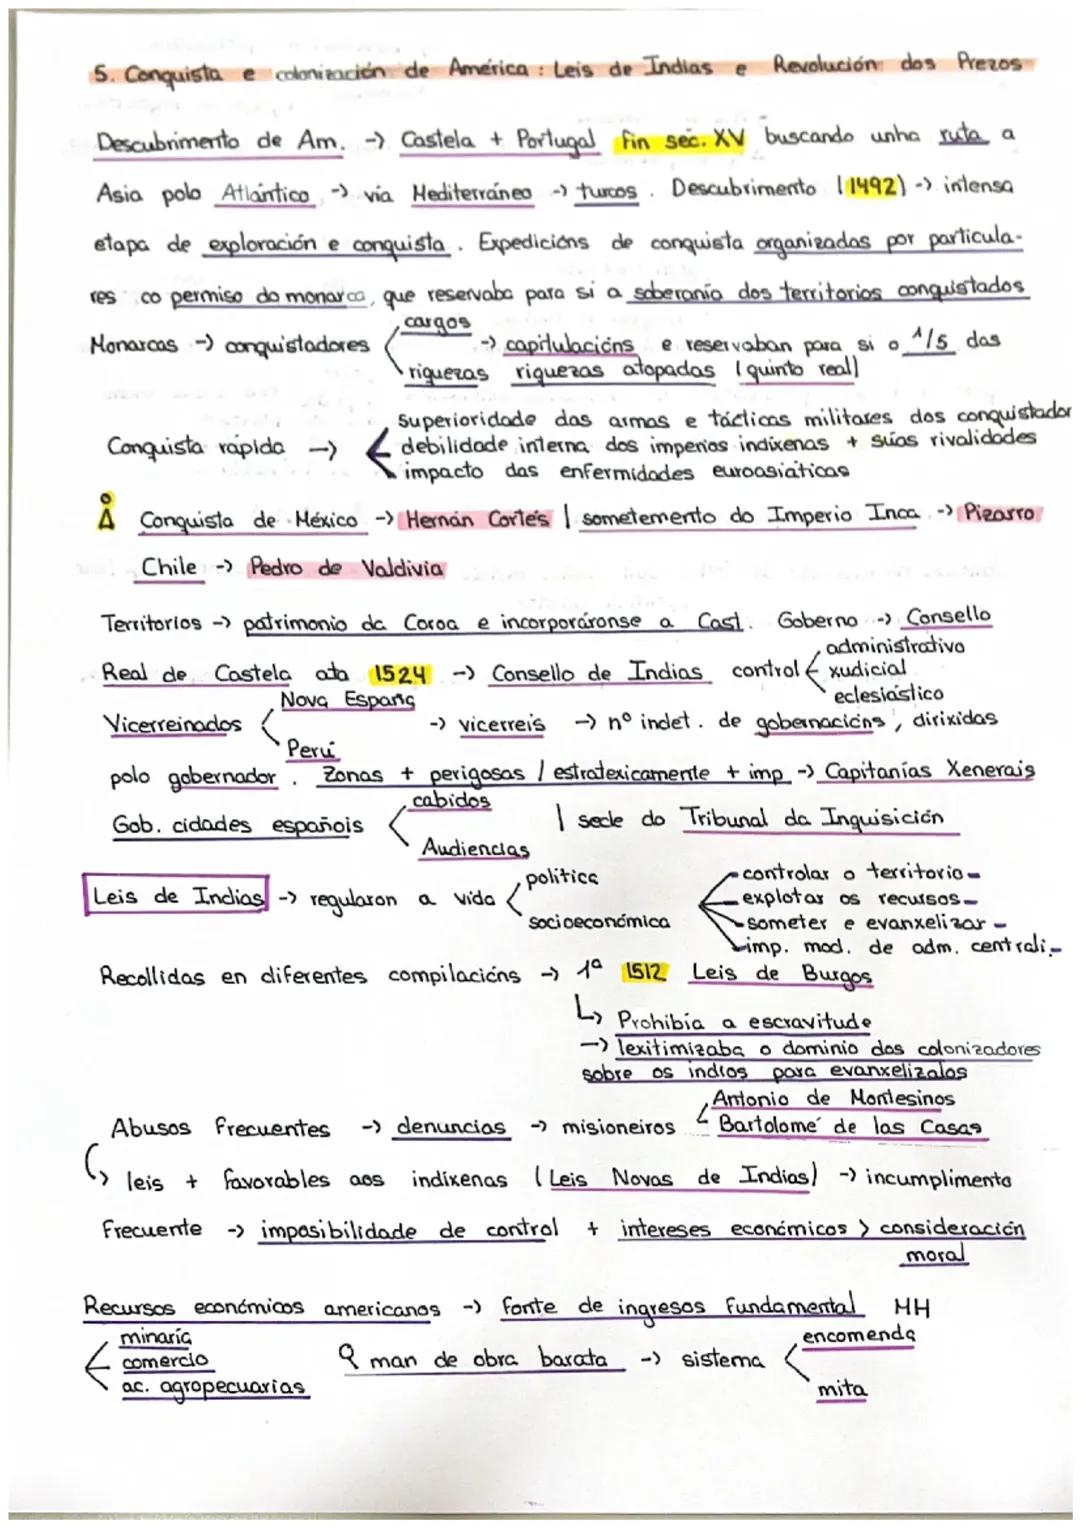 5. Conquista e colonización de América: Leis de Indias e Revolución dos Prezos
Descubrimento de Am. -> Castela + Portugal fin séc. XV buscando unha ruta a
Asia polo Atlántico -> vía Mediterráneo -> turcos. Descubrimento (1492) -> intensa
etapa de exploración e conquista. Expedicións de conquista organizadas por particula-
res co permiso do monarca, que reservaba para si a soberanía dos territorios conquistados
cargos
Monarcas -> conquistadores -> capitulacións e reservaban para si o 1/5 das
riquezas riquezas atopadas (quinto real)
superioridade das armas e tácticas militares dos conquistador
Conquista rápida -> debilidade interna dos imperios indíxenas + súas rivalidades
impacto das enfermidades euroasiáticas
Conquista de México -> Hernán Cortés | sometemento do Imperio Inca -> Pizarro
Chile -> Pedro de Valdivia
Territorios -> patrimonio da Coroa e incorporáronse a Cast. Goberno -> Consello
administrativo
Real de Castela ata 1524 -> Consello de Indias control xudicial
eclesiástico
Nova España
Vicerreinados -> vicerreis -> nº indet. de gobernacións, dirixidas
Perú
polo gobernador. Zonas + perigosas / estratexicamente + imp -> Capitanías Xenerais
cabidos
Gob. cidades españois | sede do Tribunal da Inquisición
Audiencias
política
controlar o territorio
Leis de Indias -> regularon a vida explotar os recursos
socioeconómica someter e evanxelizar
imp. mod. de adm. centrali-
Recollidas en diferentes compilacións -> 1ª 1512 Leis de Burgos
Prohibía a escravitude
-> lexitimizaba o dominio dos colonizadores
sobre os indios para evanxelizalos
Antonio de Montesinos
Abusos frecuentes -> denuncias -> misioneiros Bartolomé de las Casas
leis + favorables aos indíxenas (Leis Novas de Indias) -> incumplimento
frecuente -> imposibilidade de control + intereses económicos > consideración
moral
Recursos económicos americanos -> fonte de ingresos fundamental MH
minaría encomenda
comercio man de obra barata -> sistema
ac. agropecuarias mita